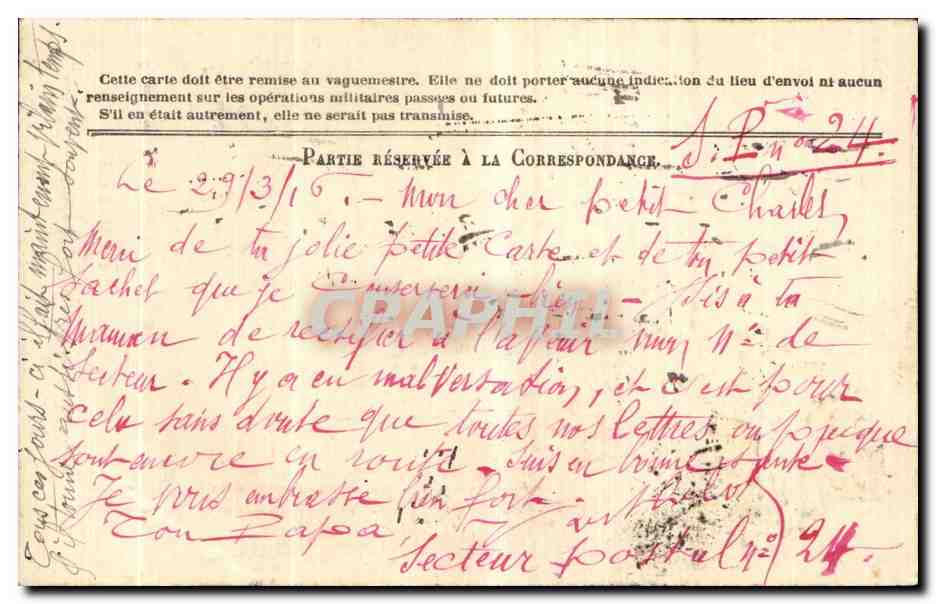 Cette carte doit être remise au vaguemestre. Elle ne doit porter aucune indication du lieu d'envoi ni aucun
renseignement sur les opérations militaires passées ou futures.
S'il en était autrement, elle ne serait pas transmise.
S. P. n° 24.
PARTIE RÉSERVÉE À LA CORRESPONDANCE.
Le 29/3/16. - Mon cher petit Charlot,
Merci de ta jolie petite Carte et de ton petit
Sachet que je Conserverai bien - Dis à ta
Maman de rectifier à l'avenir mon N° de
Secteur. Il y a eu malversation, et c'est pour
cela sans doute que toutes nos lettres ou presque
sont encore en route. Suis en bonne santé -
Je vous embrasse bien fort.
Ton Papa
Secteur postal n° 24.
Tous ces jours-ci il fait maintenant vilain temps.
fort souvent.
CPAPHIL